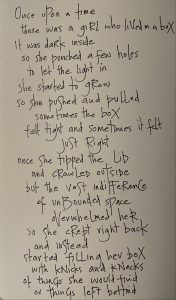 Once upon a time
there was a girl who lived in a box
It was dark inside
so she punched a few holes
to let the light in
she started to grow
so she pushed and pulled
sometimes the box
felt tight and sometimes it felt
just Right
once she tipped the lid
and crawled outside
but the vast indifference
of unbounded space
overwhelmed her
so she crept right back
and instead
started filling her box
with knicks and knacks
of things she would find
or things left behind